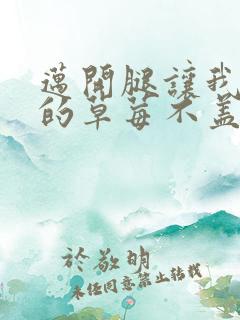 邁開腿讓我
的草莓不蓋
於敬明
未经同意禁止转载